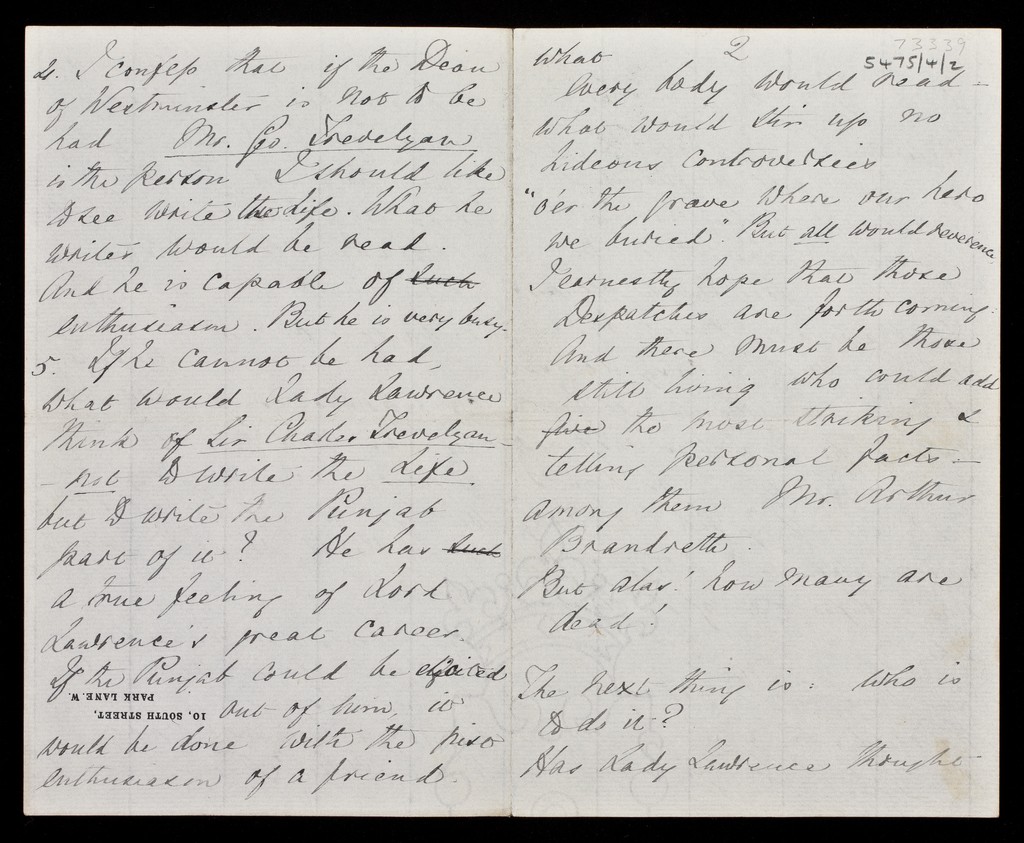 4. I confess that if the Dean
of Westminster is not to be
had Mr. Go. Trevelyan
is the person I should like
to see write the Life. What he
writes would be read.
And he is capable of such
enthusiasm. But he is very busy.
5. If he cannot be had,
what would Lady Lawrence
think of Sir Charles Trevelyan -
- not to write the Life
but to write the Punjab
part of it? He has such
a true feeling of Lord
Lawrence's great career.
If the Punjab could be elicited
10, SOUTH STREET,
PARK LANE. W.
out of him, it
would be done with the
enthusiasm of a friend.
2
73339
5475/4/2
What
every body would read -
What would stir up no
hideous controversies
"o'er the grave where our hero
we buried". But all would reverence
I earnestly hope that those
Despatches are forthcoming:
And there must be those
still living who could add
give the most striking &
telling personal facts -
among them Mr. Arthur
Brandreth.
But alas! how many are
dead!
The next thing is: Who is
to do it?
Has Lady Lawrence thought